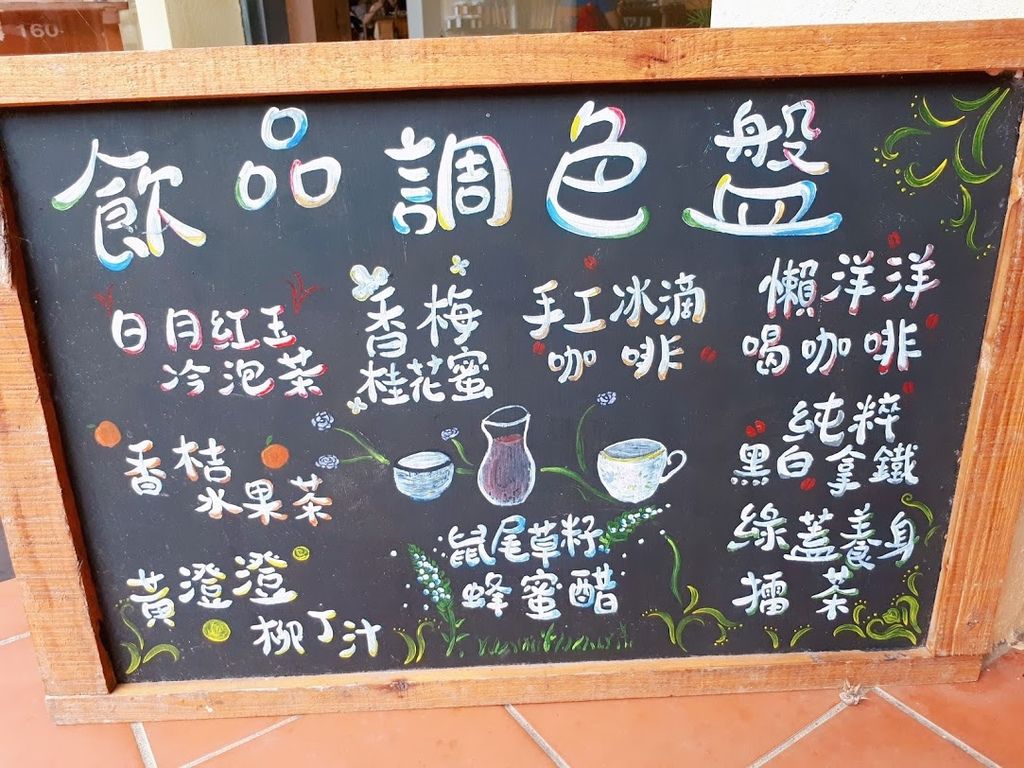 160
飲品調色盤
日月紅玉
冷泡茶
香梅
桂花蜜
手工冰滴
咖啡
懶洋洋
喝咖啡
香桔
水果茶
純粹
黑白拿鐵
黃澄澄
柳丁汁
鼠尾草籽
蜂蜜醋
綠蓋養身
擂茶